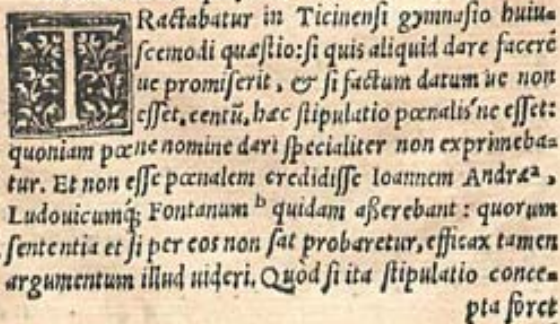 TRactabatur in Ticinensi gymnasio huiu-
scemodi quæstio: si quis aliquid dare facere
ue promiserit, & si factum datum ue non
esset, centũ, hæc stipulatio pœnalis'ne esset:
quoniam pœne nomine dari specialiter non exprimeba-
tur. Et non esse pœnalem credidisse Ioannem Andreã a,
Ludouicumq; Fontanum b quidam aßerebant: quorum
sententia et si per eos non sat probaretur, efficax tamen
argumentum illud uideri, Quòd si ita stipulatio conce-
pta foret